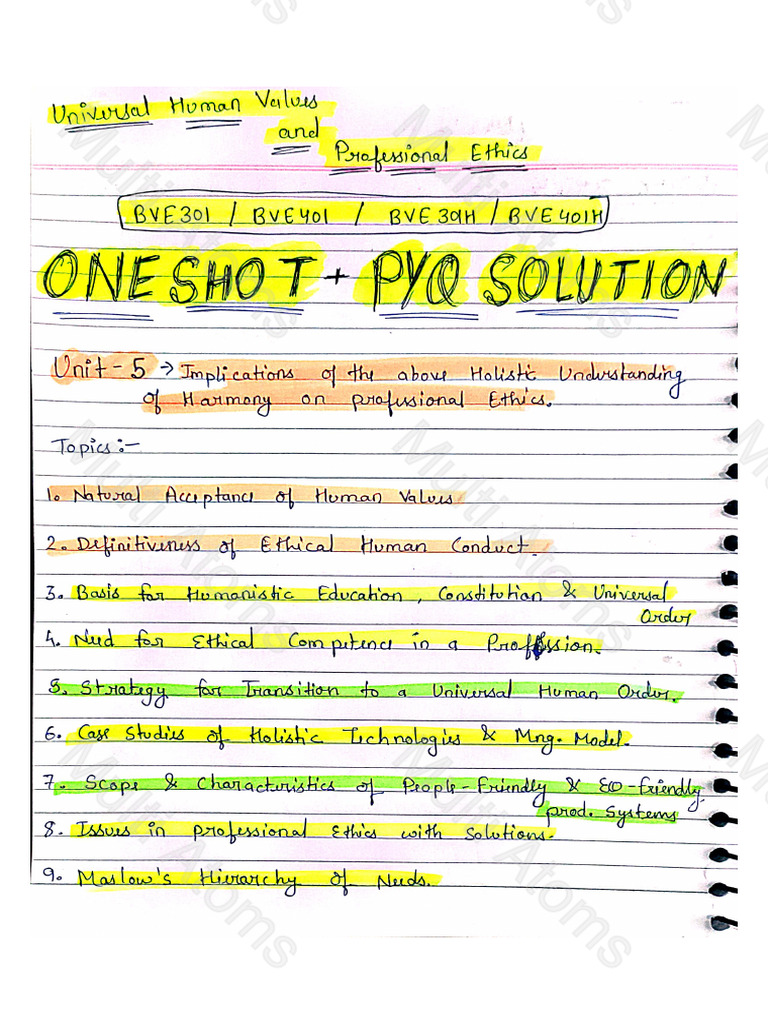 Universal Human Values
and
Professional Ethics
BVE301 / BVE401 / BVE301H / BVE401H
ONE SHOT + PYQ SOLUTION
Unit - 5 → Implications of the above Holistic Understanding
of Harmony on professional Ethics.
Topics :-
1. Natural Acceptance of Human Values
2. Definitiveness of Ethical Human Conduct.
3. Basis for Humanistic Education, Constitution & Universal
Order
4. Need for Ethical Competence in a Profession.
5. Strategy for Transition to a Universal Human Order.
6. Case Studies of Holistic Technologies & Mng. Model.
7. Scope & Characteristics of People-Friendly & Eco-friendly
prod. Systems
8. Issues in professional Ethics with solutions.
9. Maslow's Hierarchy of Needs.
Multi Atoms
Multi Atoms
Multi Atoms
Multi Atoms